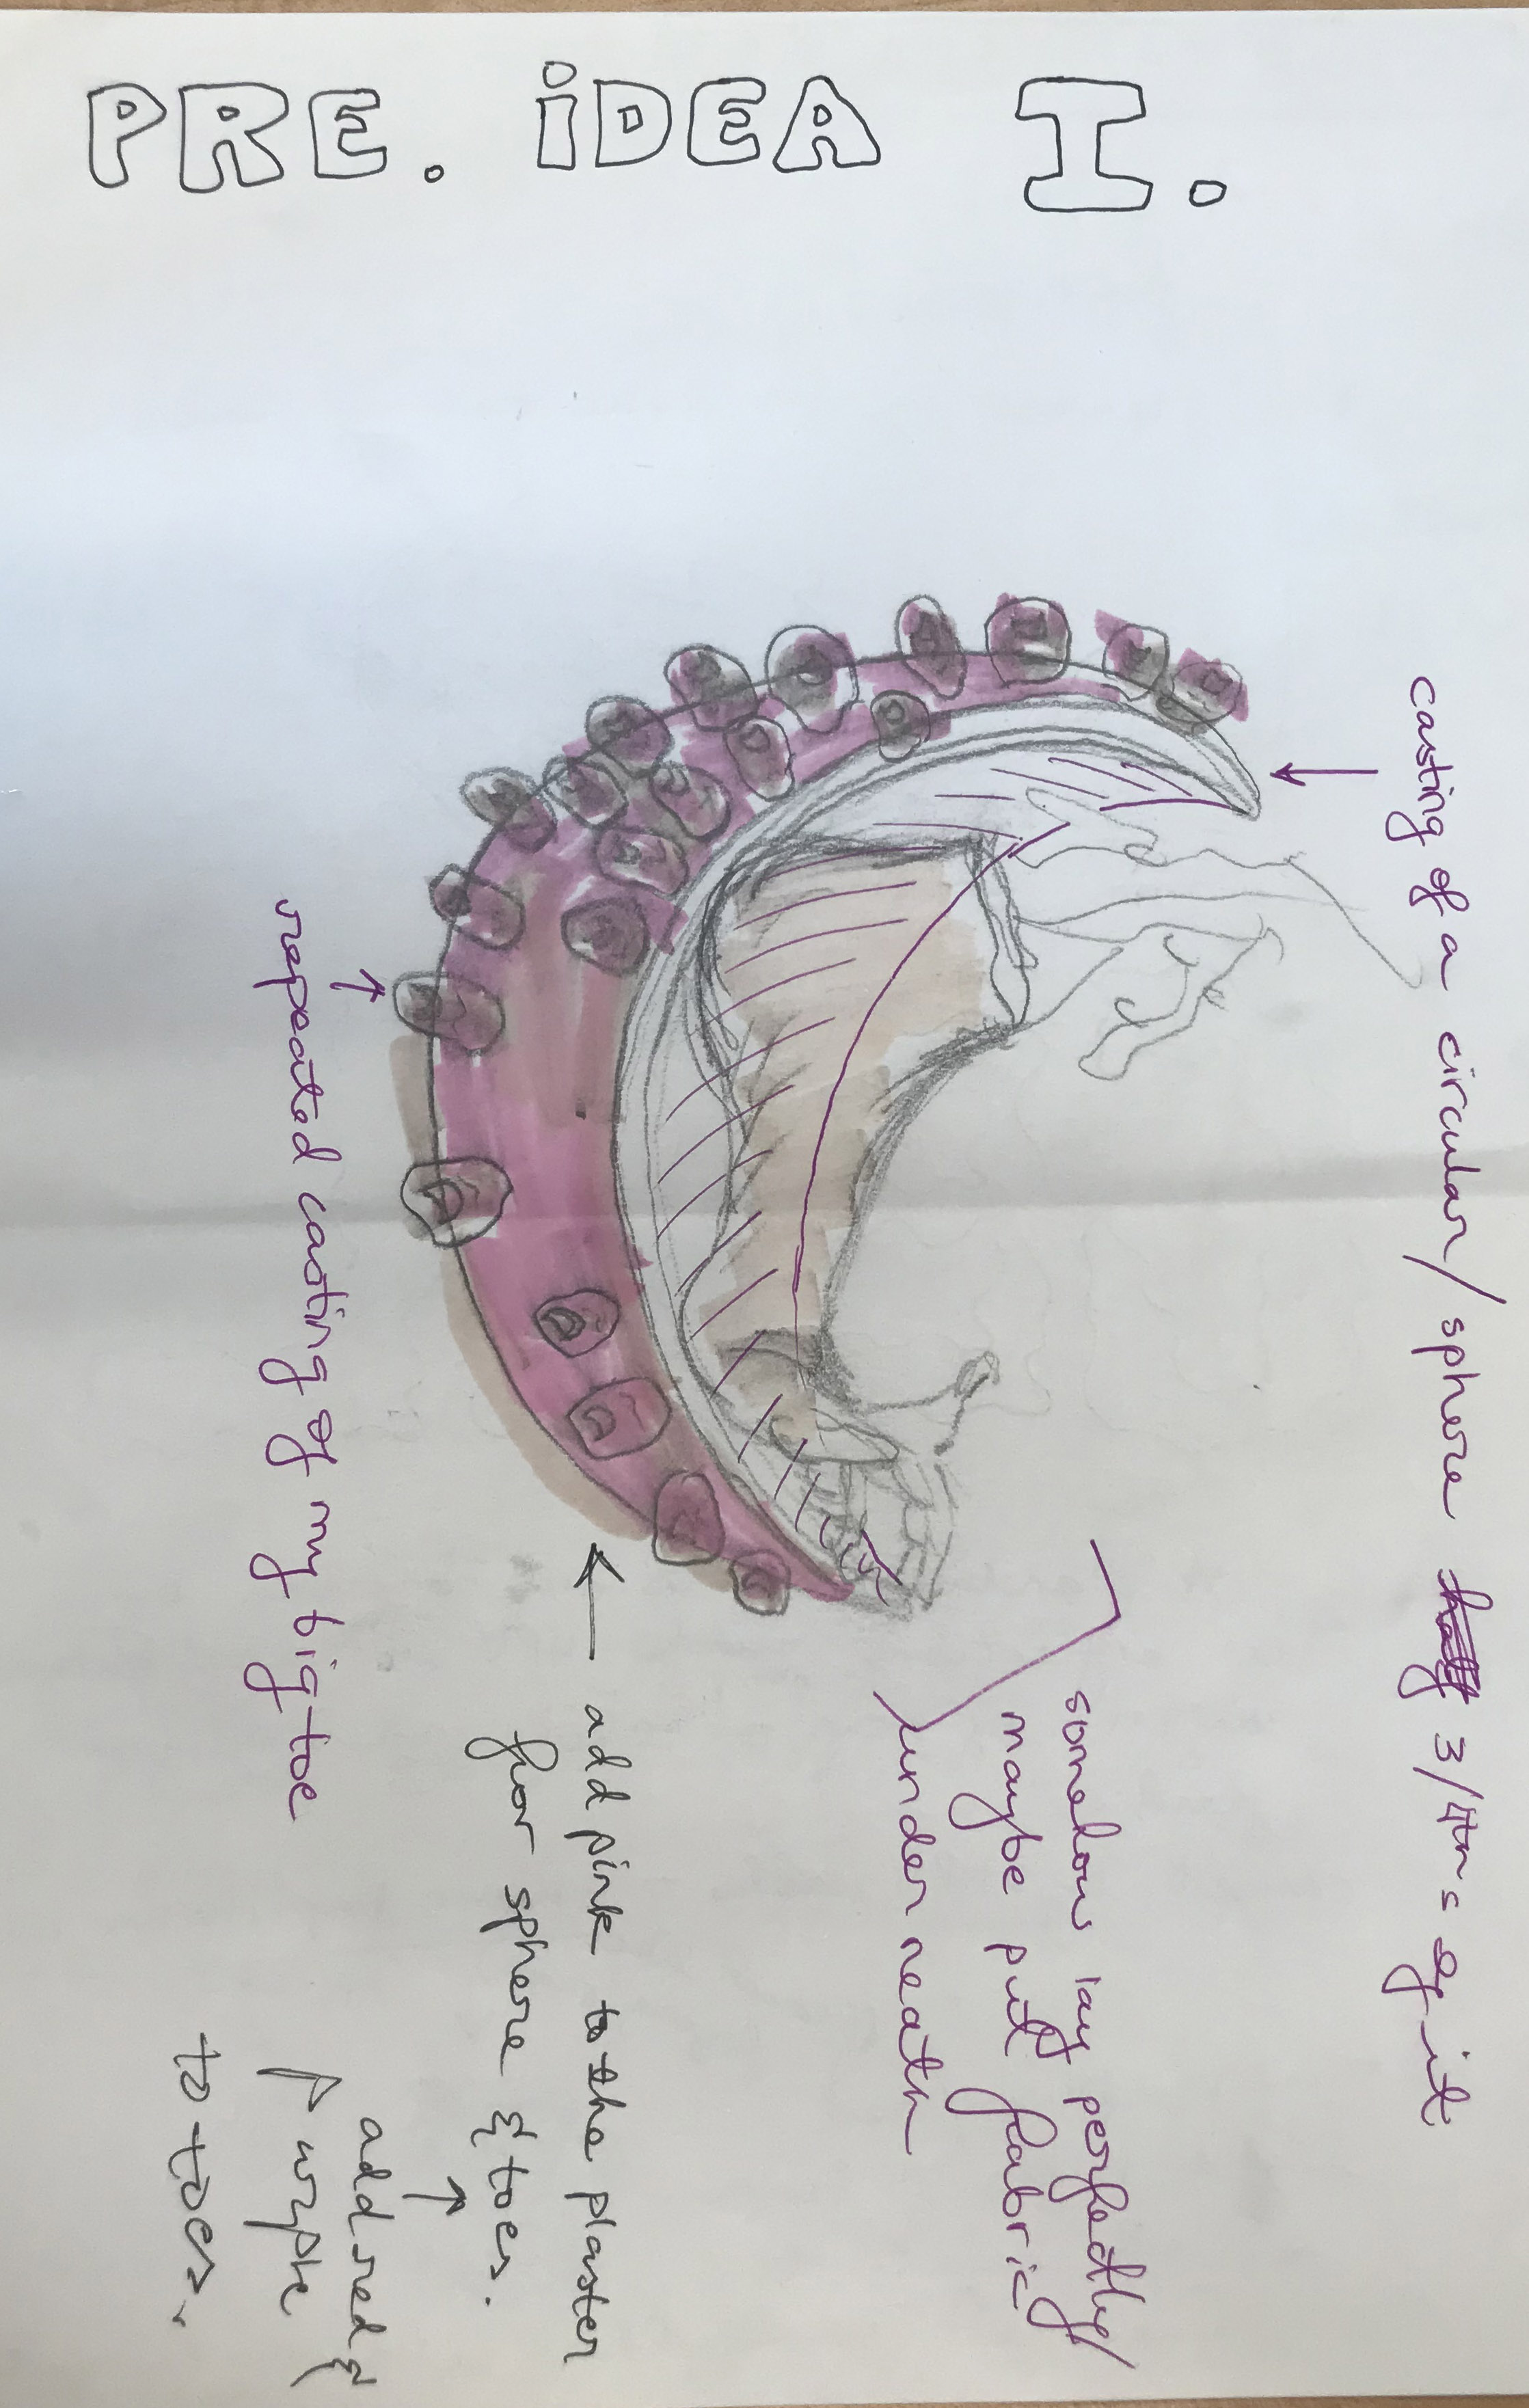 PRE. iDEA I.
casting of a circular/sphere half 3/4ths of it
somehow lay perfectly/
maybe put fabric
underneath
add pink to the plaster
for sphere & toes.
add red &
purple
to toes.
repeated casting of my big toe